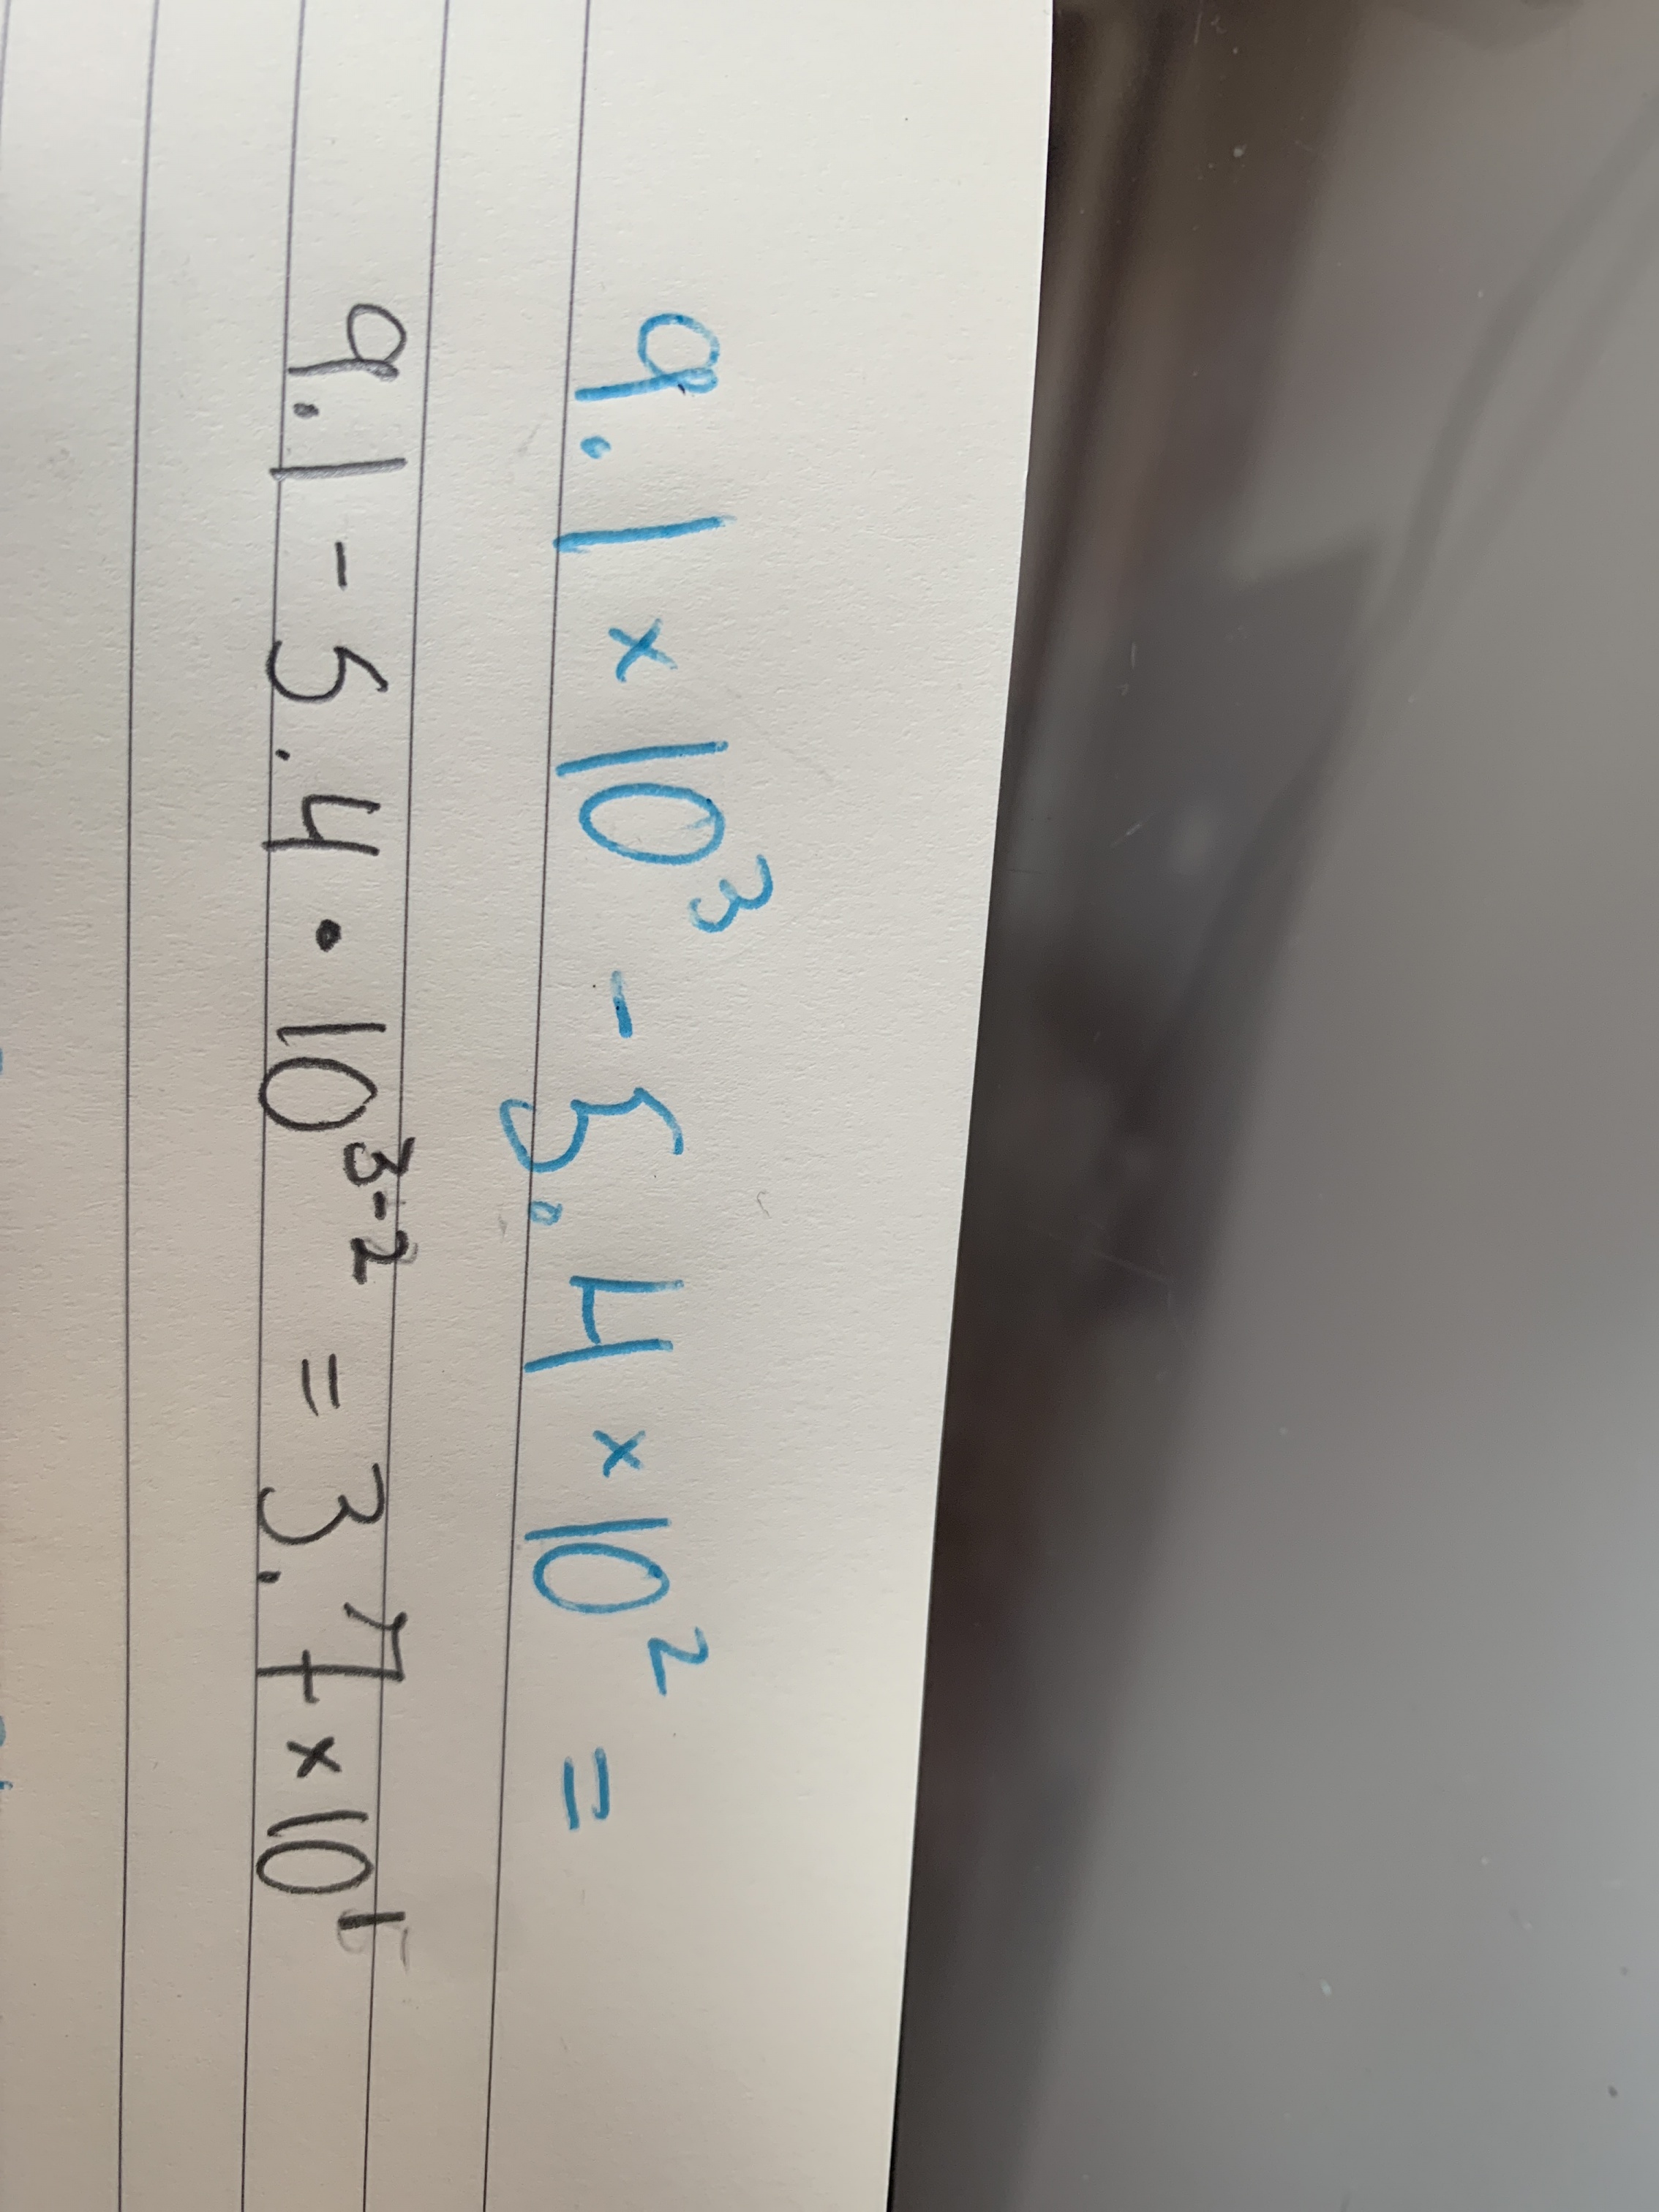 9.1 × 10³ - 5.4 × 10² =
9.1 - 5.4 • 10³⁻² = 3.7 × 10¹